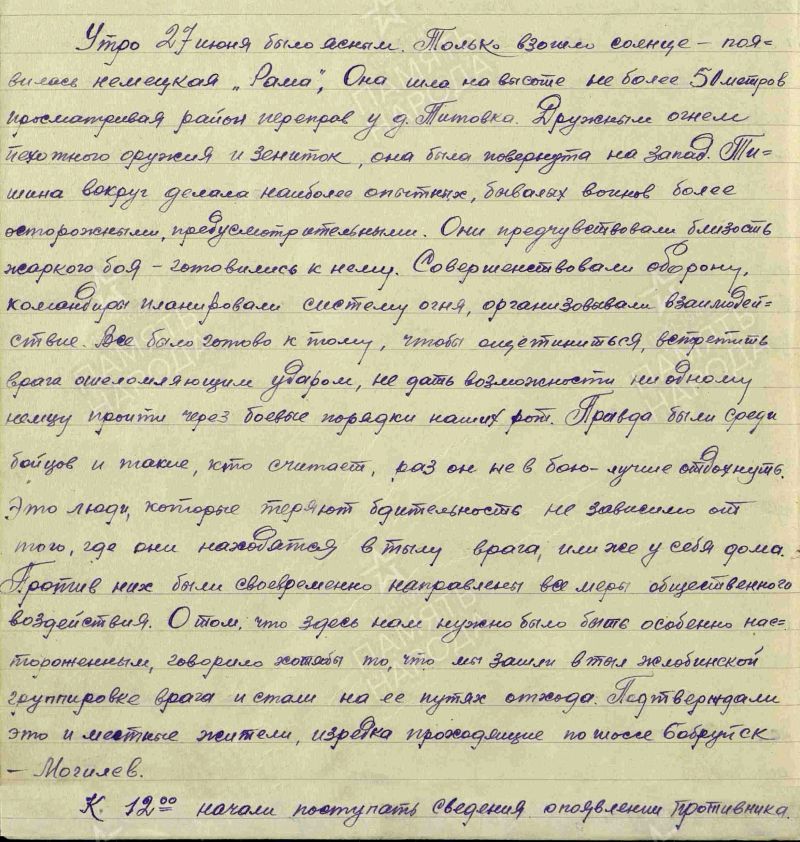 Утро 27 июня было ясным. Только взошло солнце – поя-
вилась немецкая „Рама", Она шла на высоте не более 50 метров
просматривая район переправ у д. Титовка. Дружным огнем
пехотного оружия и зениток, она была повернута на запад. Ти-
шина вокруг делала наиболее опытных, бывалых воинов более
осторожными, предусмотрительными. Они предчувствовали близость
жаркого боя – готовились к нему. Совершенствовали оборону,
командиры планировали систему огня, организовывали взаимодей-
ствие. Все было готово к тому, чтобы ощетиниться, встретить
врага ошеломляющим ударом, не дать возможности ни одному
немцу пройти через боевые порядки наших рот. Правда были среди
бойцов и такие, кто считает, раз он не в бою – лучше отдохнуть.
Это люди, которые теряют бдительность не зависимо от
того, где они находятся в тылу врага, или же у себя дома.
Против них были своевременно направлены все меры общественного
воздействия. О том, что здесь нам нужно было быть особенно нас-
тороженным, говорило хотябы то, что мы зашли в тыл жлобинской
группировке врага и стали на ее путях отхода. Подтверждали
это и местные жители, изредка проходящие по шоссе Бобруйск
– Могилев.
К 12⁰⁰ начали поступать сведения о появлении противника.